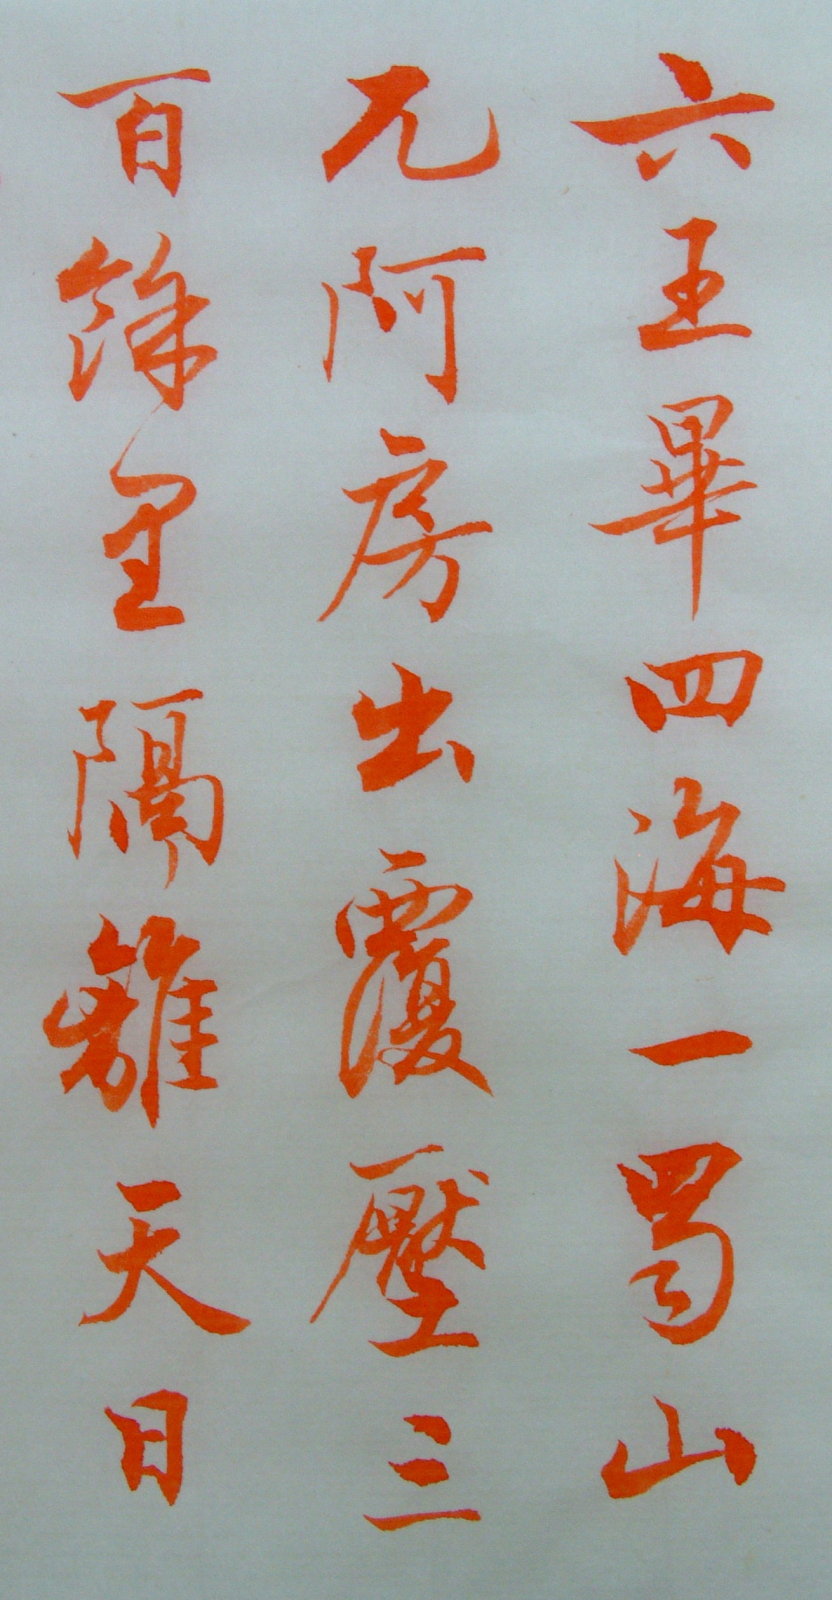 六王畢四海一蜀山
兀阿房出覆壓三
百餘里隔離天日